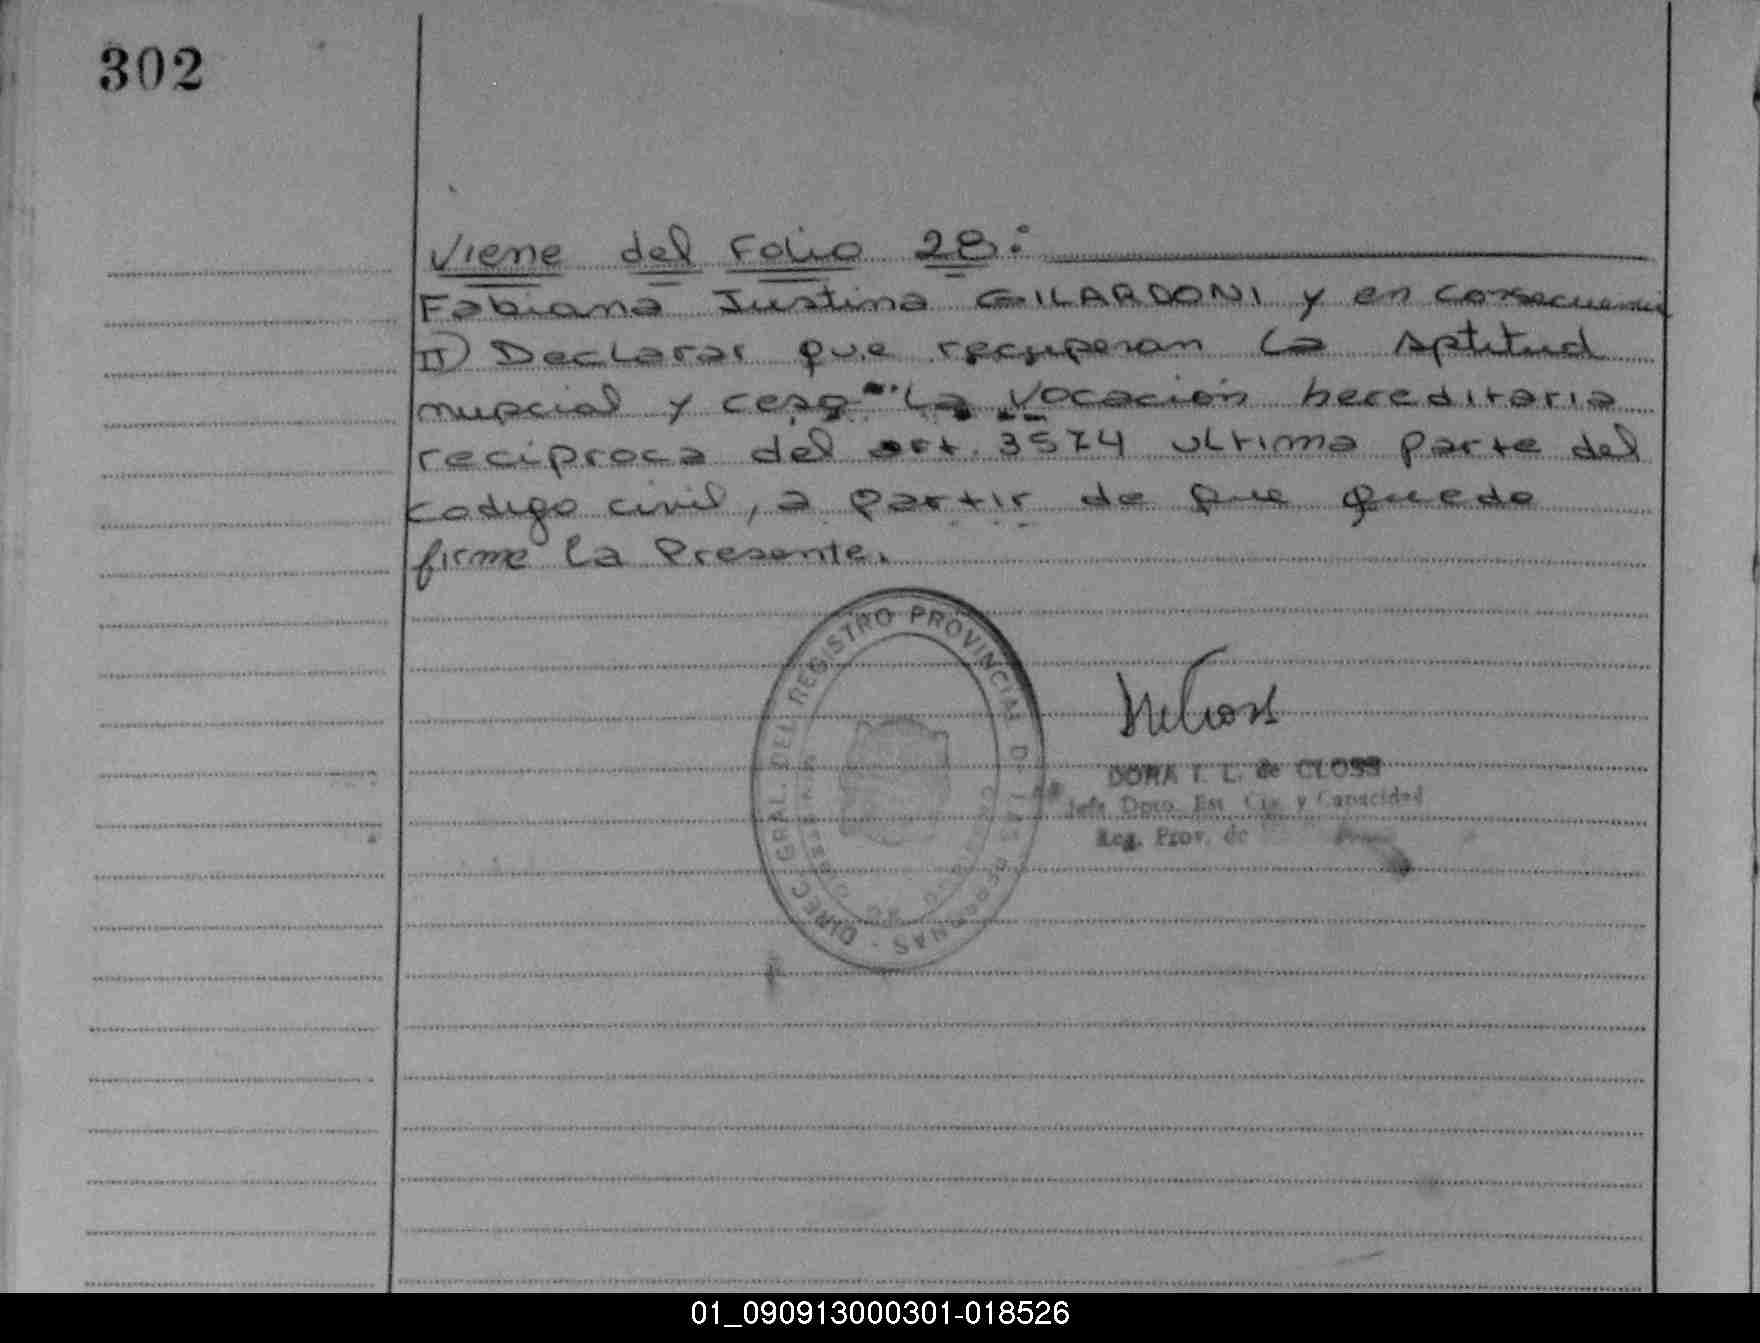 302
Viene del Folio 28:
Fabiana Justina GILARDONI y en consecuencia
II) Declarar que recuperan la aptitud
nupcial y cesa la vocación hereditaria
reciproca del art. 3574 ultima parte del
codigo civil, a partir de que quede
firme la Presente.
DIREC. GRAL. DEL REGISTRO PROVINCIAL DE LAS PERSONAS
DORA I. L. de CLOSS
Jefe Dpto. Est. Civ. y Capacidad
Reg. Prov. de
01_090913000301-018526